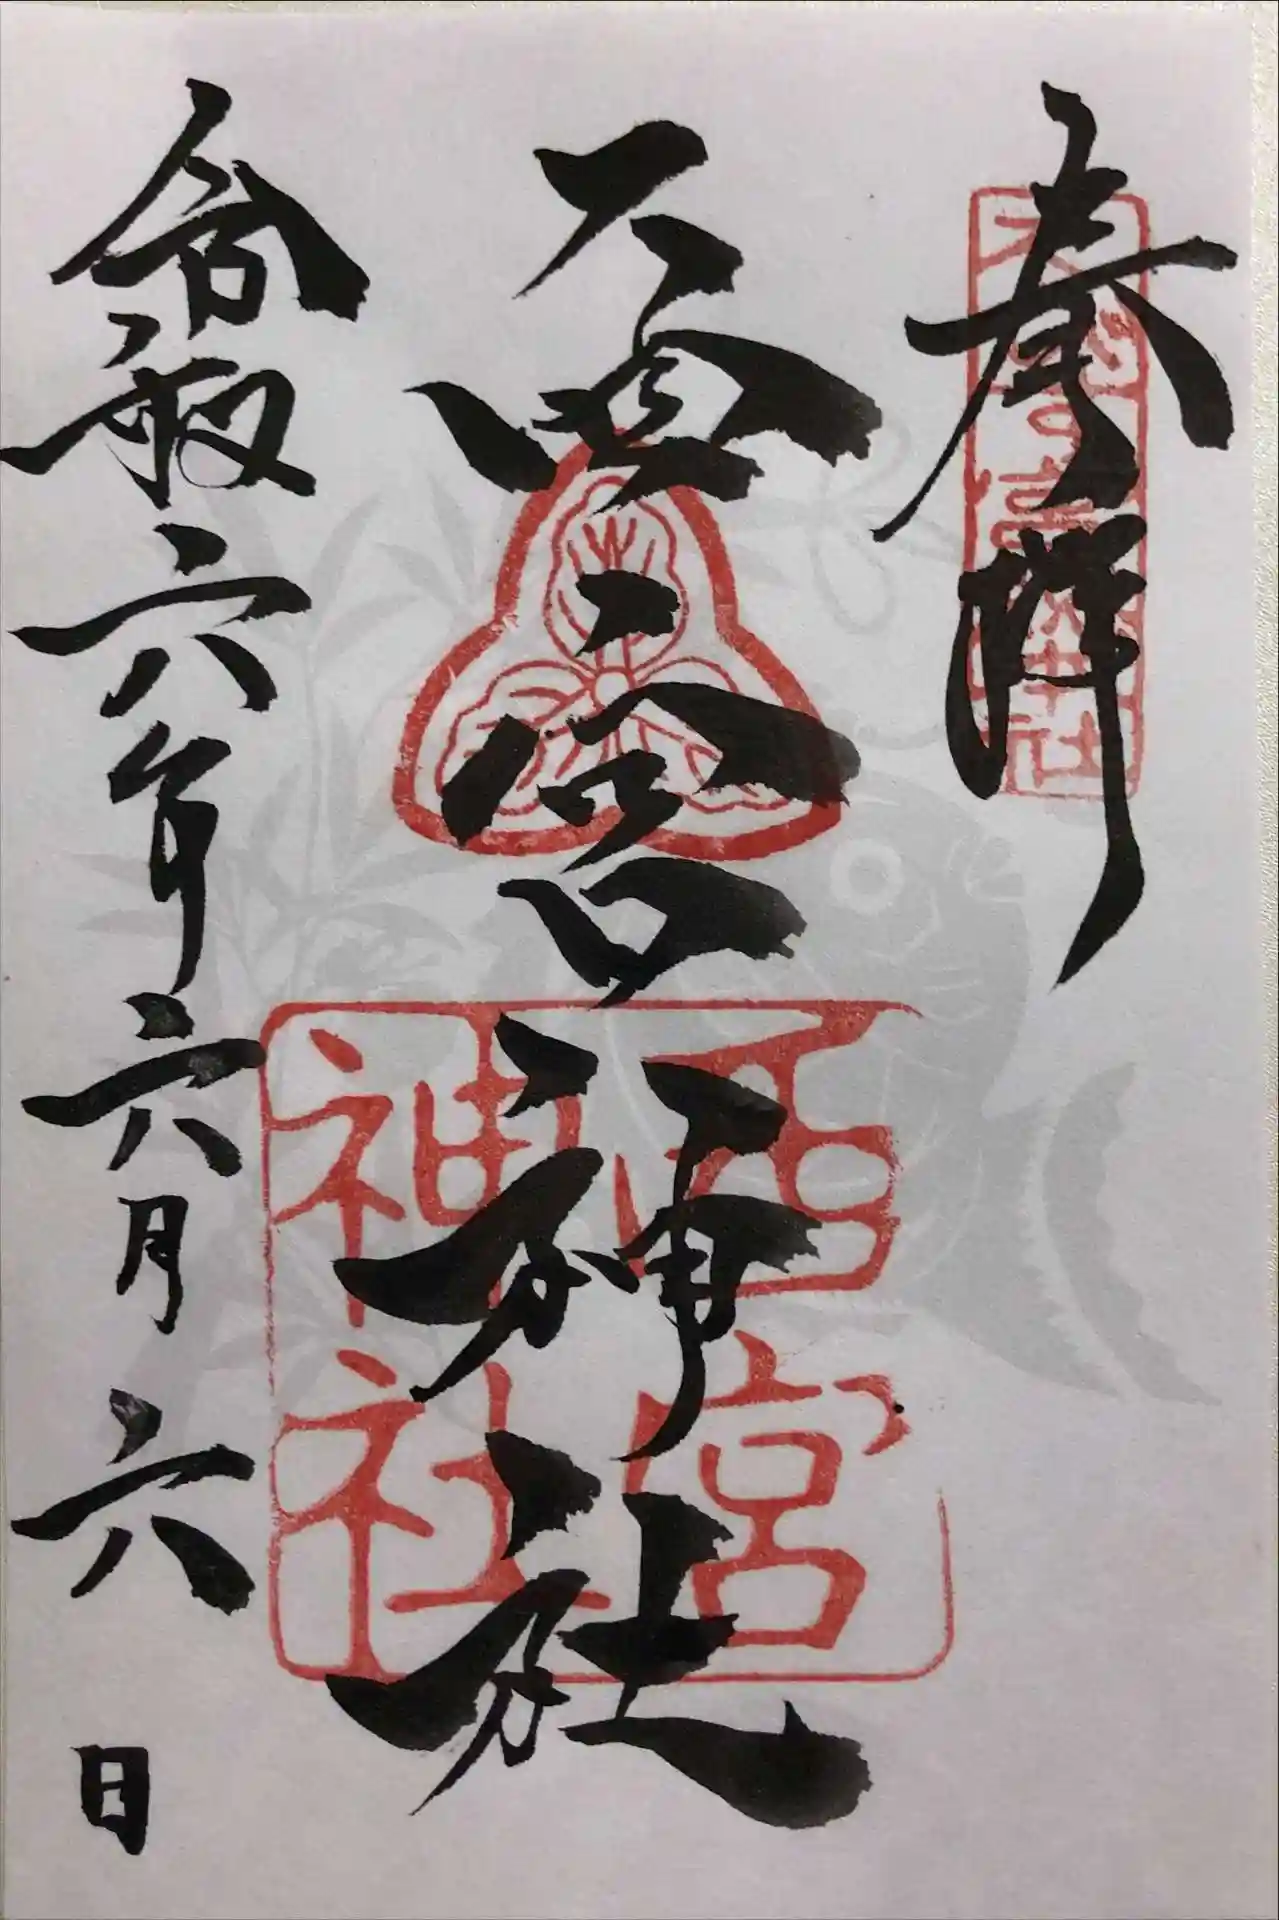 奉拝
西宮神社
令和六年六月六日
西宮
神社